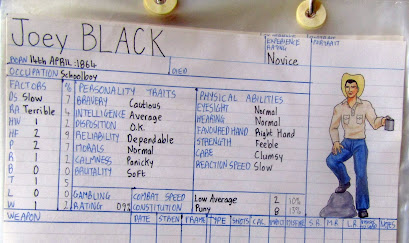 Joey BLACK
EXPERIENCE RATING Novice
PORTRAIT
BORN 14th APRIL 1864 DIED
OCCUPATION Schoolboy
FACTORS % PERSONALITY TRAITS PHYSICAL ABILITIES
DS Slow 7 BRAVERY Cautious EYESIGHT Normal
RA Terrible 4 INTELLIGENCE Average HEARING Normal
HW 1 2 DISPOSITION O.K. FAVOURED HAND Right Hand
HF 2 9 RELIABILITY Dependable STRENGTH Feeble
P 2 7 MORALS Normal CARE Clumsy
R 1 2 CALMNESS Panicky REACTION SPEED Slow
B 0 1 BRUTALITY Soft
T 1 5
L 0 0 GAMBLING COMBAT SPEED Low Average 2
W 1 2 RATING CONSTITUTION Puny 8
WEAPON DATE STK'N FRAME TYPE SHOTS CAL S.R. M.R. L.R. NOTES